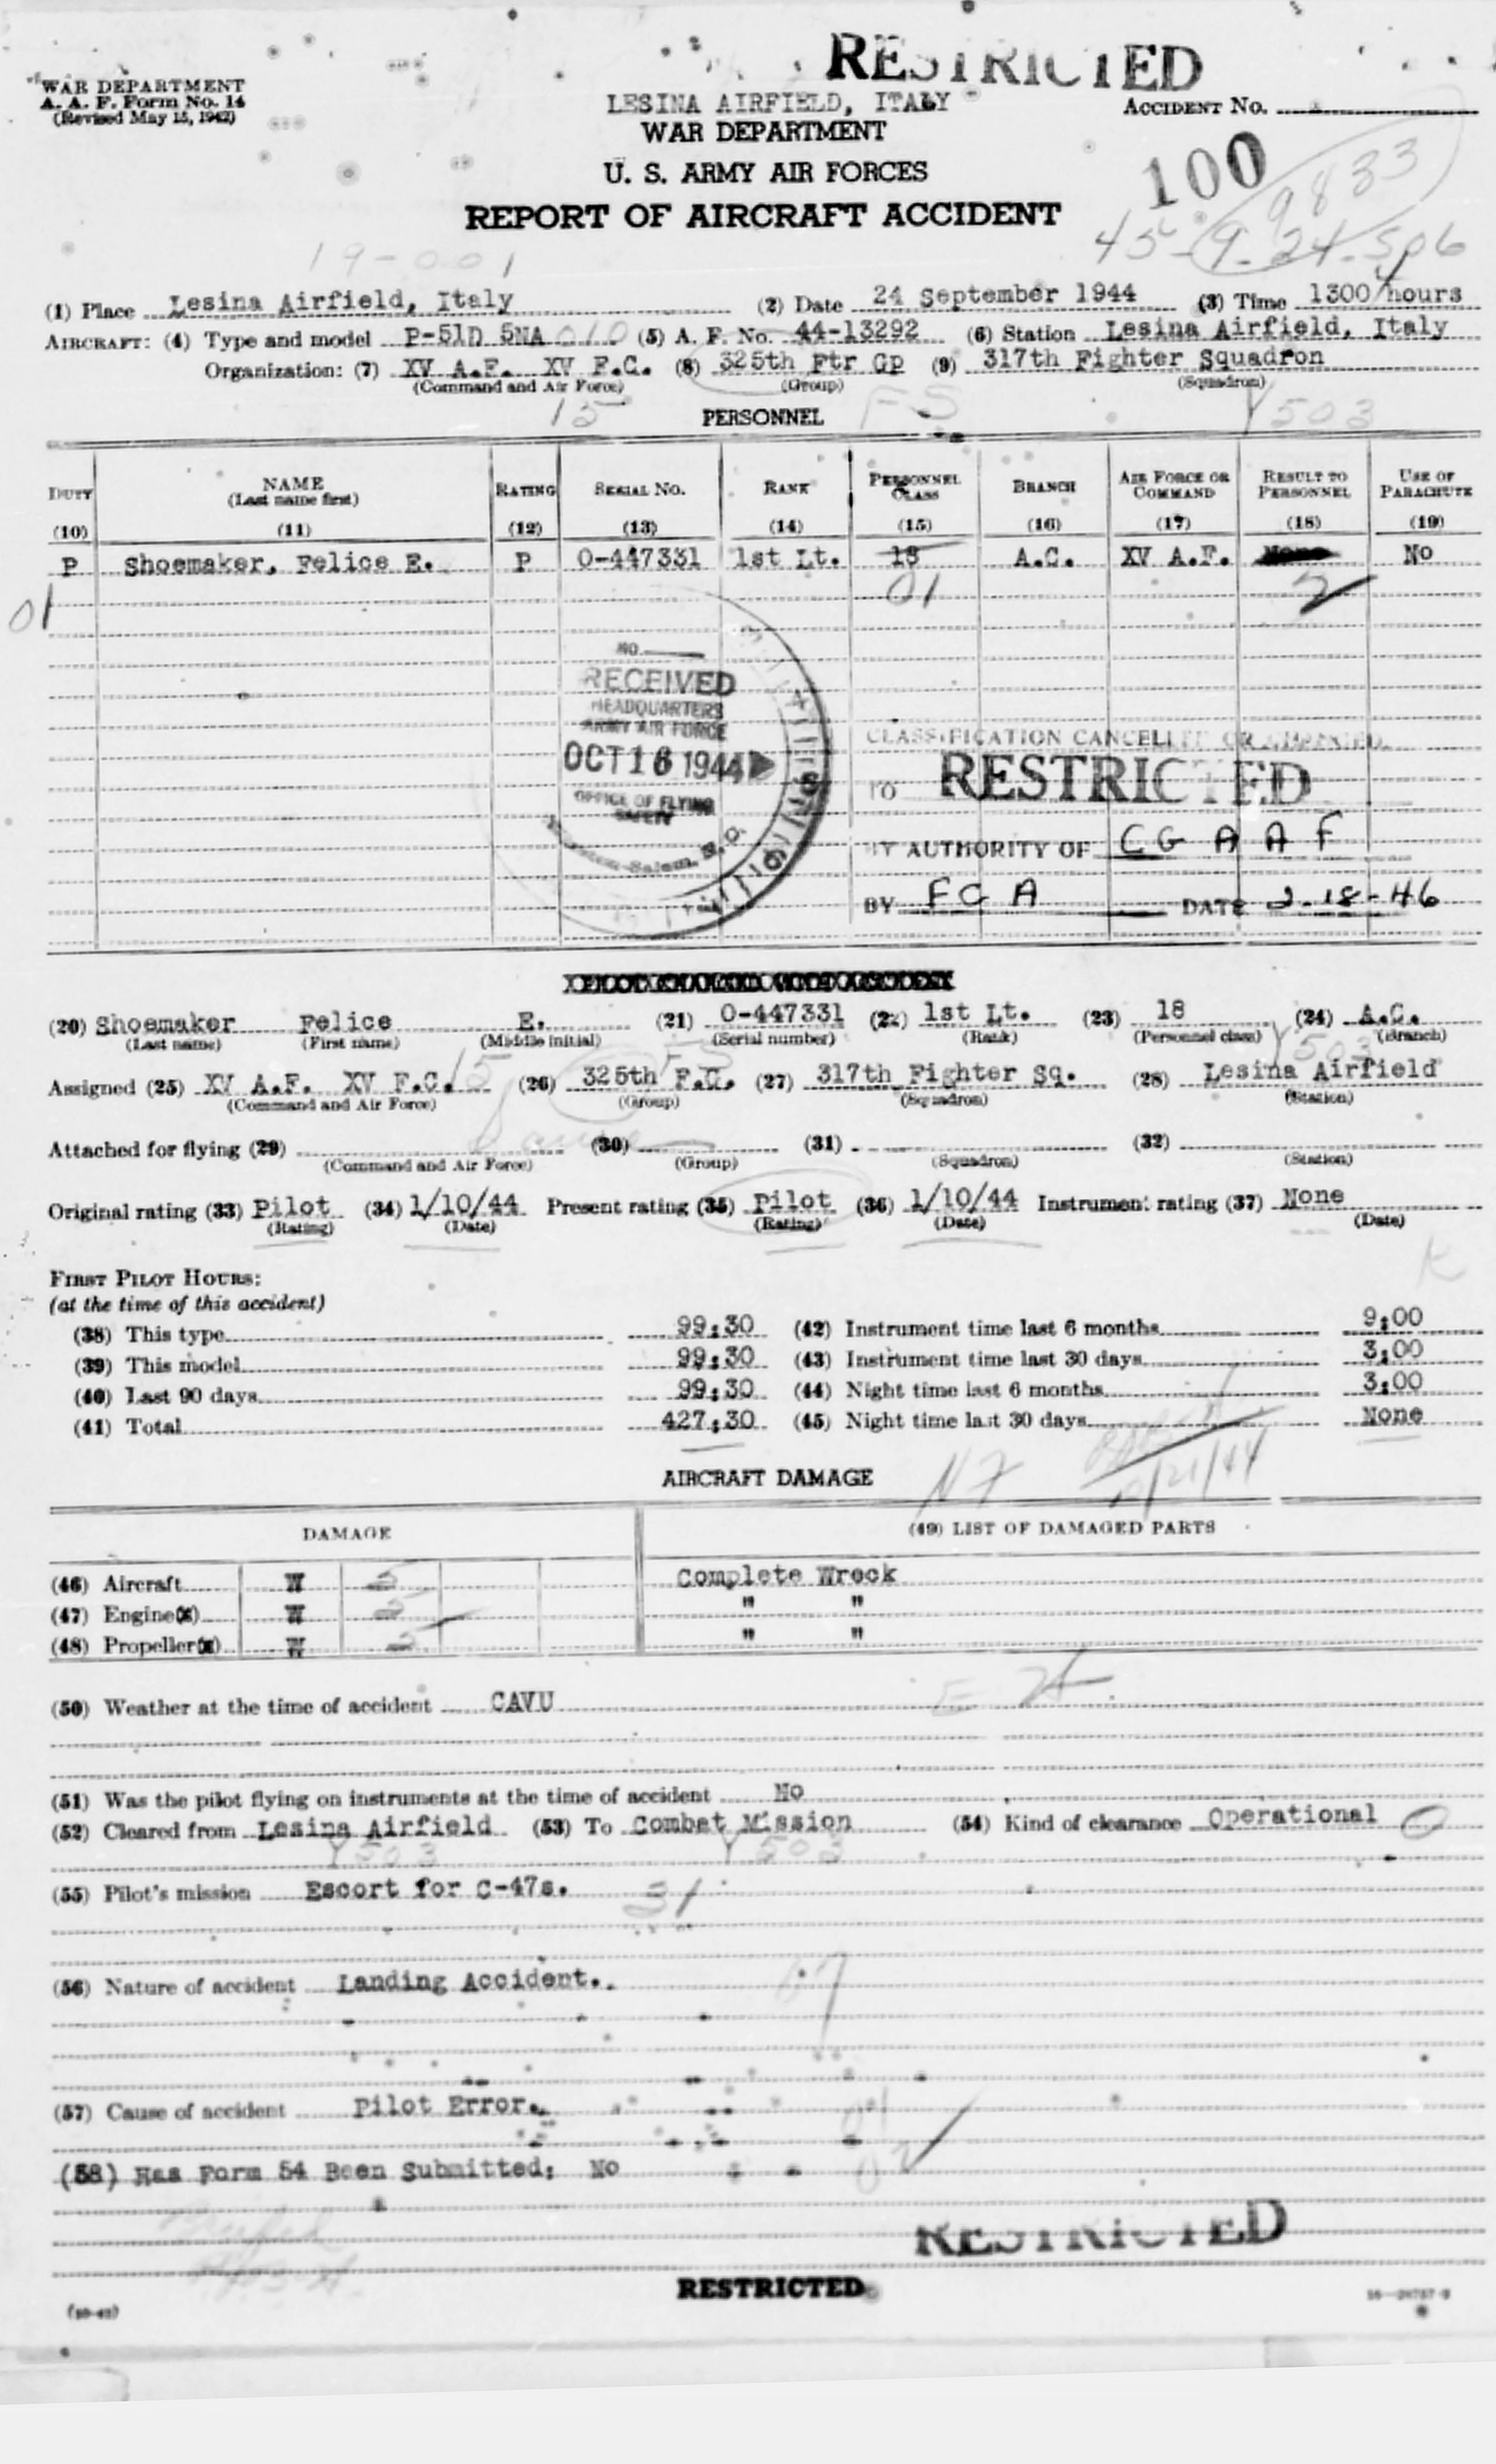 RESTRICTED
WAR DEPARTMENT
A. A. F. Form No. 14
(Revised May 15, 1942)
LESINA AIRFIELD, ITALY
ACCIDENT No.
WAR DEPARTMENT
U. S. ARMY AIR FORCES
REPORT OF AIRCRAFT ACCIDENT
100
9833
45-9-24-506
19-001
(1) Place Lesina Airfield, Italy (2) Date 24 September 1944 (3) Time 1300 hours
AIRCRAFT: (4) Type and model P-51D 5NA 010 (5) A. F. No. 44-13292 (6) Station Lesina Airfield, Italy
Organization: (7) XV A.F. XV F.C. (8) 325th Ftr Gp (9) 317th Fighter Squadron
(Command and Air Force) (Group) (Squadron)
15 FS Y503
PERSONNEL
DUTY NAME (Last name first) RATING SERIAL No. RANK PERSONNEL CLASS BRANCH AIR FORCE OR COMMAND RESULT TO PERSONNEL USE OF PARACHUTE
(10) (11) (12) (13) (14) (15) (16) (17) (18) (19)
P Shoemaker, Felice E. P O-447331 1st Lt. 18 A.C. XV A.F. None No
01 01 2
NO.
RECEIVED
HEADQUARTERS
ARMY AIR FORCE
OCT 16 1944
OFFICE OF FLYING
SAFETY
CLASSIFICATION CANCELLED OR CHANGED
TO RESTRICTED
BY AUTHORITY OF C G A A F
BY F C A DATE 2-18-46
PILOT CHARGED WITH ACCIDENT
(20) Shoemaker Felice E. (21) O-447331 (22) 1st Lt. (23) 18 (24) A.C.
(Last name) (First name) (Middle initial) (Serial number) (Rank) (Personnel class) (Branch)
15 FS Y503
Assigned (25) XV A.F. XV F.C. (26) 325th F.G. (27) 317th Fighter Sq. (28) Lesina Airfield
(Command and Air Force) (Group) (Squadron) (Station)
Same
Attached for flying (29) (30) (31) (32)
(Command and Air Force) (Group) (Squadron) (Station)
Original rating (33) Pilot (34) 1/10/44 Present rating (35) Pilot (36) 1/10/44 Instrument rating (37) None
(Rating) (Date) (Rating) (Date) (Date)
FIRST PILOT HOURS:
(at the time of this accident)
(38) This type 99:30 (42) Instrument time last 6 months 9:00
(39) This model 99:30 (43) Instrument time last 30 days 3:00
(40) Last 90 days 99:30 (44) Night time last 6 months 3:00
(41) Total 427:30 (45) Night time last 30 days None
AIRCRAFT DAMAGE
DAMAGE (49) LIST OF DAMAGED PARTS
(46) Aircraft W 5 Complete Wreck
(47) Engine(s) W 5 " "
(48) Propeller(s) W 5 " "
(50) Weather at the time of accident CAVU
(51) Was the pilot flying on instruments at the time of accident No
(52) Cleared from Lesina Airfield (53) To Combat Mission (54) Kind of clearance Operational O
Y503 Y503
(55) Pilot's mission Escort for C-47s. 31
(56) Nature of accident Landing Accident.
(57) Cause of accident Pilot Error.
(58) Has Form 54 Been Submitted: No
RESTRICTED
RESTRICTED